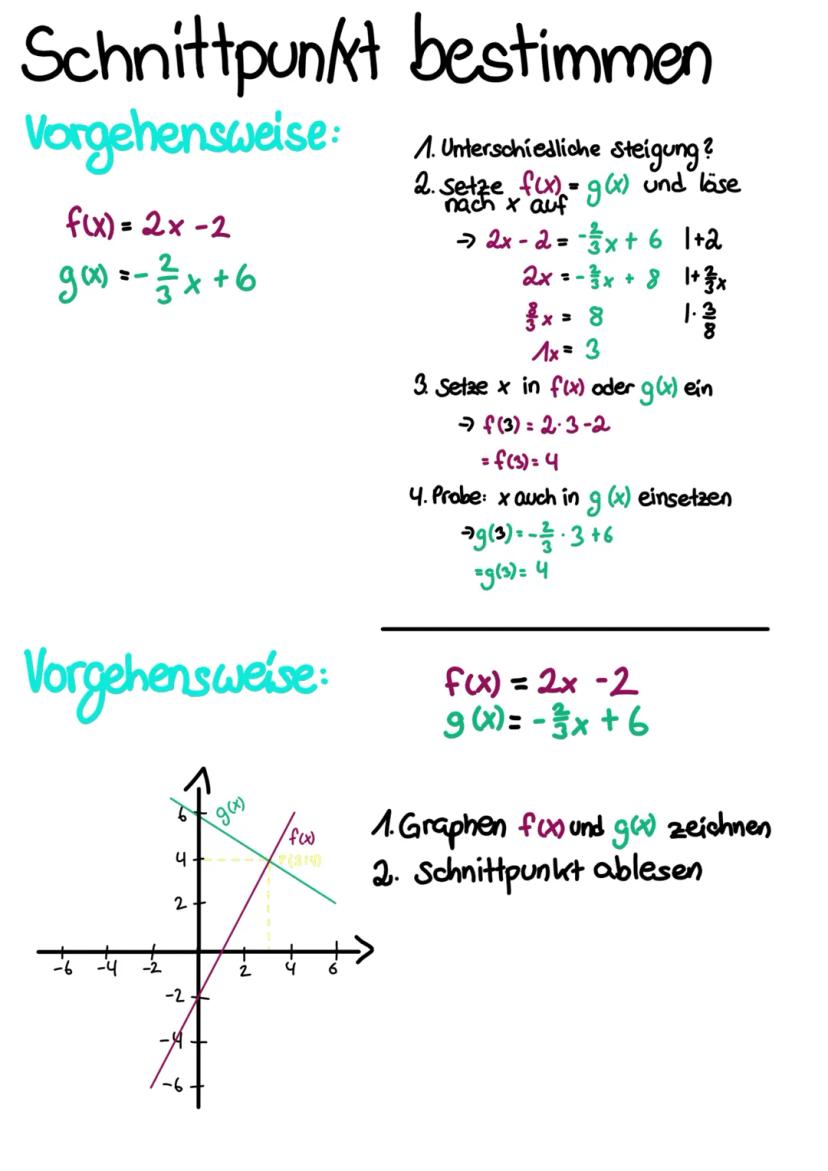 Schnittpunkt bestimmen
Vorgehensweise:
f(x) = 2x - 2
g(x) = - 2/3 x + 6
1. Unterschiedliche Steigung?
2. Setze f(x) = g(x) und löse
nach x auf
→ 2x - 2 = - 2/3 x + 6 | + 2
2x = - 2/3 x + 8 | + 2/3 x
8/3 x = 8 | · 3/8
1x = 3
3. Setze x in f(x) oder g(x) ein
→ f(3) = 2 · 3 - 2
= f(3) = 4
4. Probe: x auch in g(x) einsetzen
→ g(3) = - 2/3 · 3 + 6
= g(3) = 4
Vorgehensweise:
f(x) = 2x - 2
g(x) = - 2/3 x + 6
1. Graphen f(x) und g(x) zeichnen
2. Schnittpunkt ablesen
g(x)
f(x)
P(3|4)
6
4
2
-6 -4 -2 2 4 6
-2
-4
-6